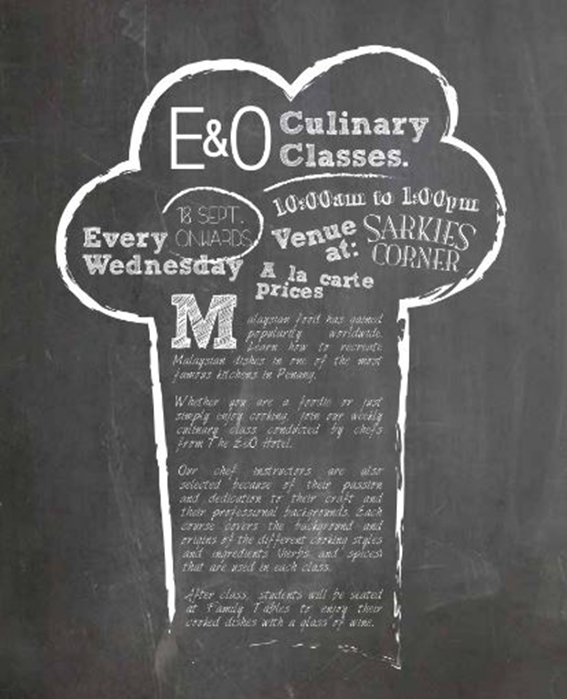 E&O Culinary
Classes.
10:00am to 1:00pm
18 SEPT.
ONWARDS
Every
Wednesday
Venue
at:
SARKIES
CORNER
A la carte
prices
Malaysian food has gained
popularity worldwide.
Learn how to recreate
Malaysian dishes in one of the most
famous kitchens in Penang.
Whether you are a foodie or just
simply enjoy cooking, join our weekly
culinary class conducted by chefs
from The E&O Hotel.
Our chef instructors are also
selected because of their passion
and dedication to their craft and
their professional backgrounds. Each
course covers the background and
origins of the different cooking styles
and ingredients (herbs and spices)
that are used in each class.
After class, students will be seated
at Family Tables to enjoy their
cooked dishes with a glass of wine.